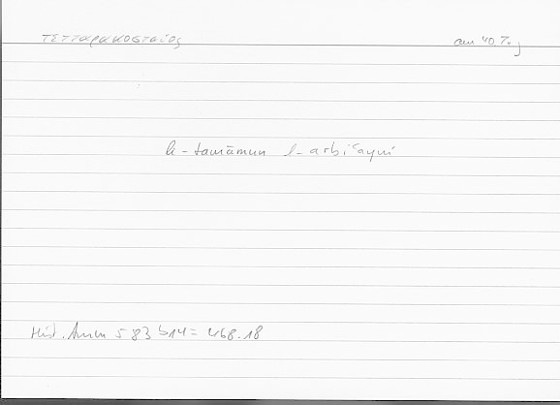 τετταρακοσταῖος am 40. T.
li-tamāmun l-arbiʿayni
Hist. Anim 583 b14 = 468.18